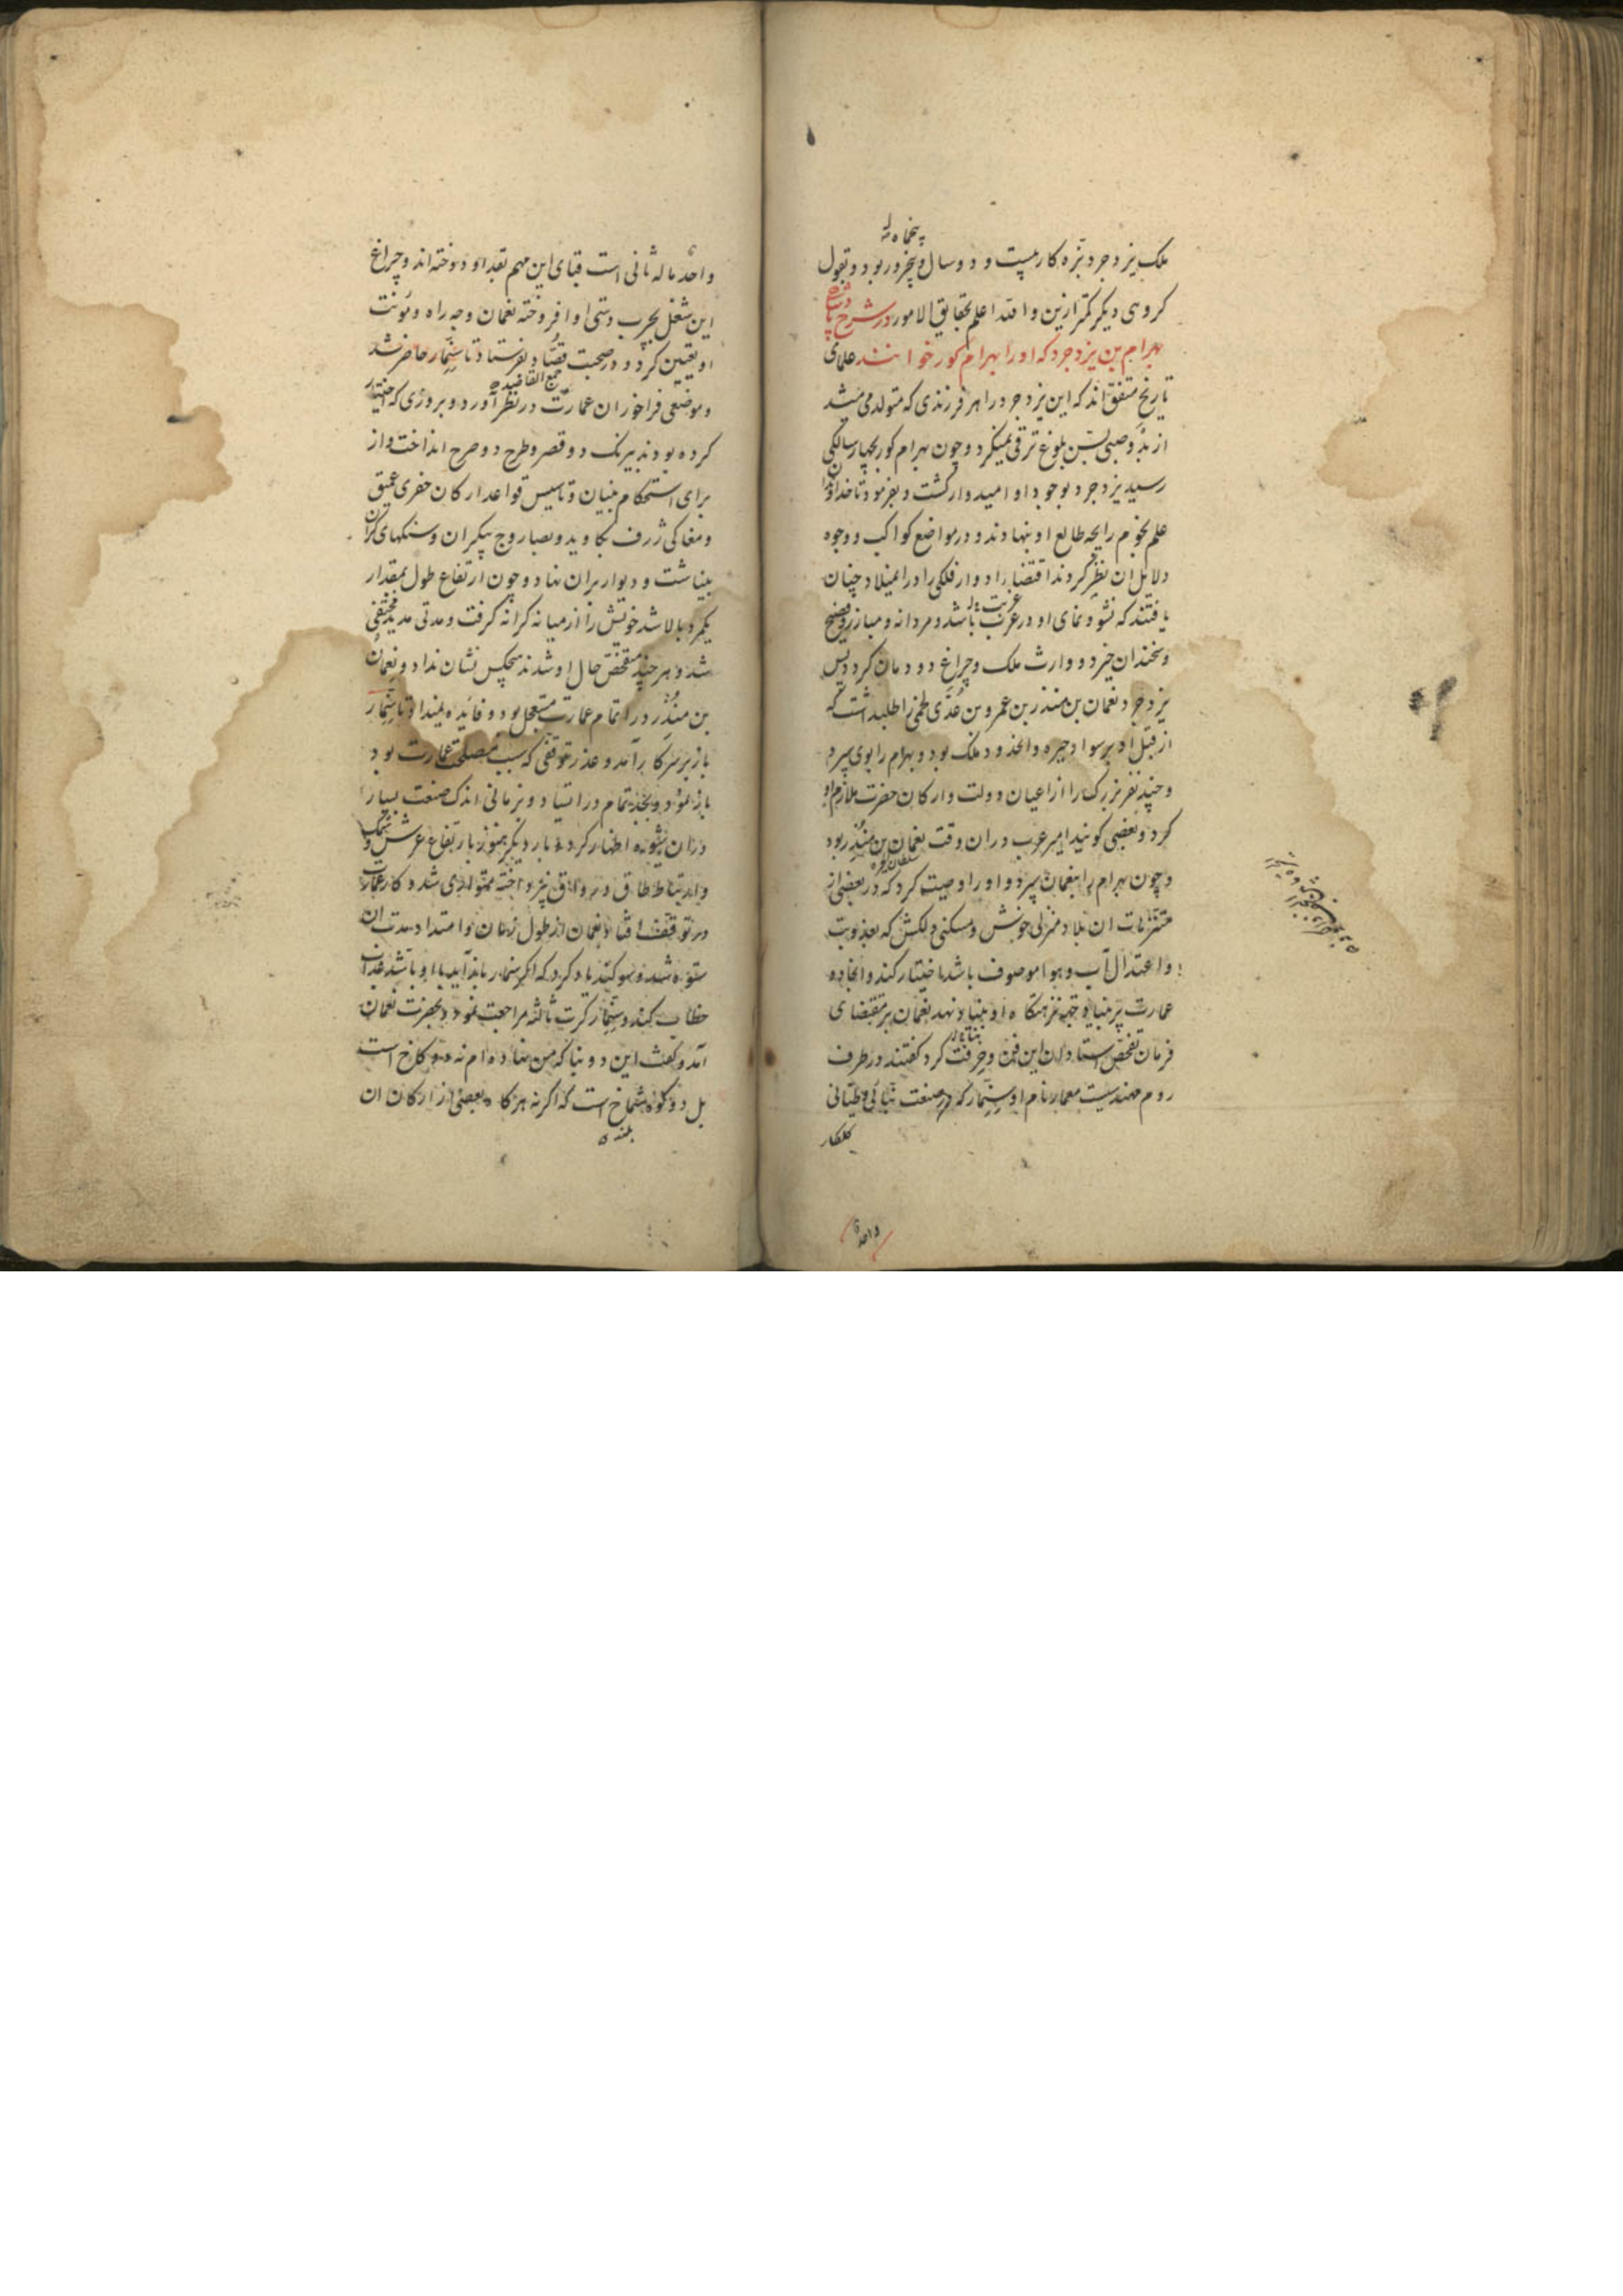 پنجماه
ملک یزدجرد بزه کار بیست و دو سال و پنجروز بود و بقول
کروهی دیکر کمتر ازین والله اعلم بحقایق الامور در شرح پادشاهی
بهرام بن یزدجرد که او را بهرام کور خوانند علمای
تاریخ متفق اند که این یزدجرد را هر فرزندی که متولد می‌شد
از بدو صبی بسن بلوغ ترقی نمیکرد و چون بهرام کور بچهار سالکی
رسید یزدجرد بوجود او امیدوار کشت و بفرمود تا خداوندان
علم نجوم رایجه طالع او بنهادند و در مواضع کواکب و وجوه
دلایل ان نظر کردند اقتضا ادوار فلکی را در امیلاد چنان
یافتند که نشو و نمای او در عرب باشد و مردانه و مبارز و فصیح
و سخندان خیزد و وارث ملک و چراغ دودمان کردد پس
یزدجرد نعمان بن منذر بن عمرو بن عدی لخمی را طلب داشت که
از قبل او بر سواد حیره والحدود ملک بود و بهرام را بوی سپرد
و چند نفر بزرک را از اعیان دولت و ارکان حضرت ملازم او
کرد و بعضی کویند امیر عرب دران وقت نعمان بن منذر بود
و چون بهرام را بنعمان سپرد و او را وصیت کرد که در بعضی از
متنزهات ان بلاد منزلی خوش و مسکنی دلکش که بعذوبت
و اعتدال آب و هوا موصوف باشد اختیار کند و انجا دو
عمارت بنیاد نهد نعمان بر مقتضای
فرمان تفحص استادان این فن و حرفت کرد کفتند در طرف
روم مهندسیست معمار نام او سنمار که در صنعت بنائی و طیانی
کلکار
واحد
واحد ما له ثانی است قبای این مهم بقد او دوخته اند و چراغ
این شغل بچرب دستی او افروخته نعمان وجه راه و مؤنت
او تعیین کرد و در صحبت قصاد بفرستاد تا سنمار حاضر شد
و موضعی فراخور ان عمارت در نظر آورد و بروزی که اختیار
کرده بودند بیرنک دو قصر و طرح دو صرح انداخت و از
برای استحکام بنیان و تاسیس قواعد ارکان حفری عمیق
و مغاکی ژرف بکاوید و بصاروج بیکران و سنکهای کران
بینباشت و دیوار بران نهاد و چون ارتفاع طول بمقدار
یکمرد بالا شد خویش را از میانه کرانه کرفت و مدتی مدید مختفی
شد و هر چند متفحص حال او شدند هیچکس نشان نداد و نعمان
بن منذر در اتمام عمارت مستعجل بود و فایده نمیداد تا سنمار
باز بر سر کار آمد و عذر توقفی که سبب مصلحت عمارت بود
باز نمود و بجد تمام در ایستاد و بزمانی اندک صنعت بسیار
دران شیوه اظهار کرد و بار دیکر هنوز بارتفاع عرش و سمک
و ارتباط طاق و رواق نپرداخته متواری شد و کار عمارت
در توقف افتاد نعمان از طول زمان و امتداد مدت ان
ستوه شد و سوکند یاد کرد که اکر سنمار باز آید با او باشد عذاب
خطاب کند و سنمار کرت ثالثه مراجعت نمود و بحضرت نعمان
آمد و کفت این دو بنا که من نهاده ام نه دو کاخ است
بل دو کوه شماخ است که اکر نه هر کاه بعضی از ارکان ان
بلند